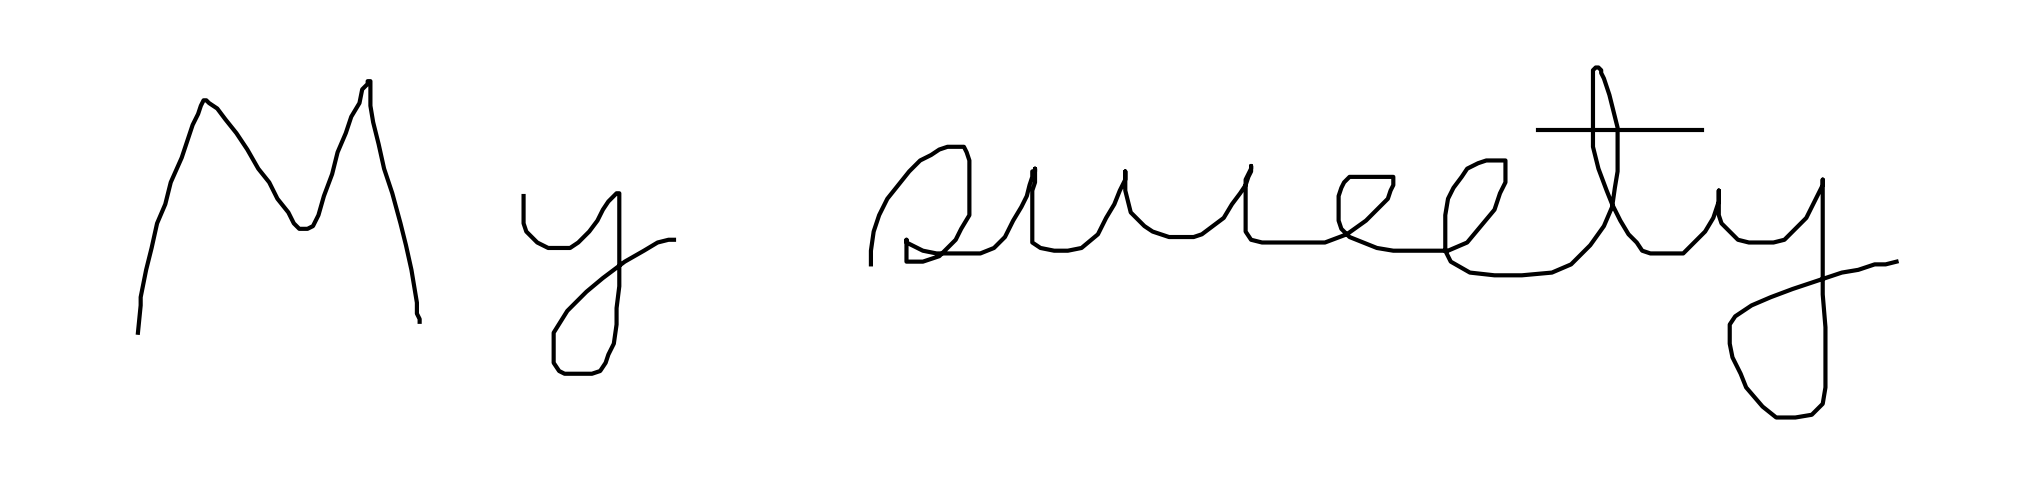 My sweety